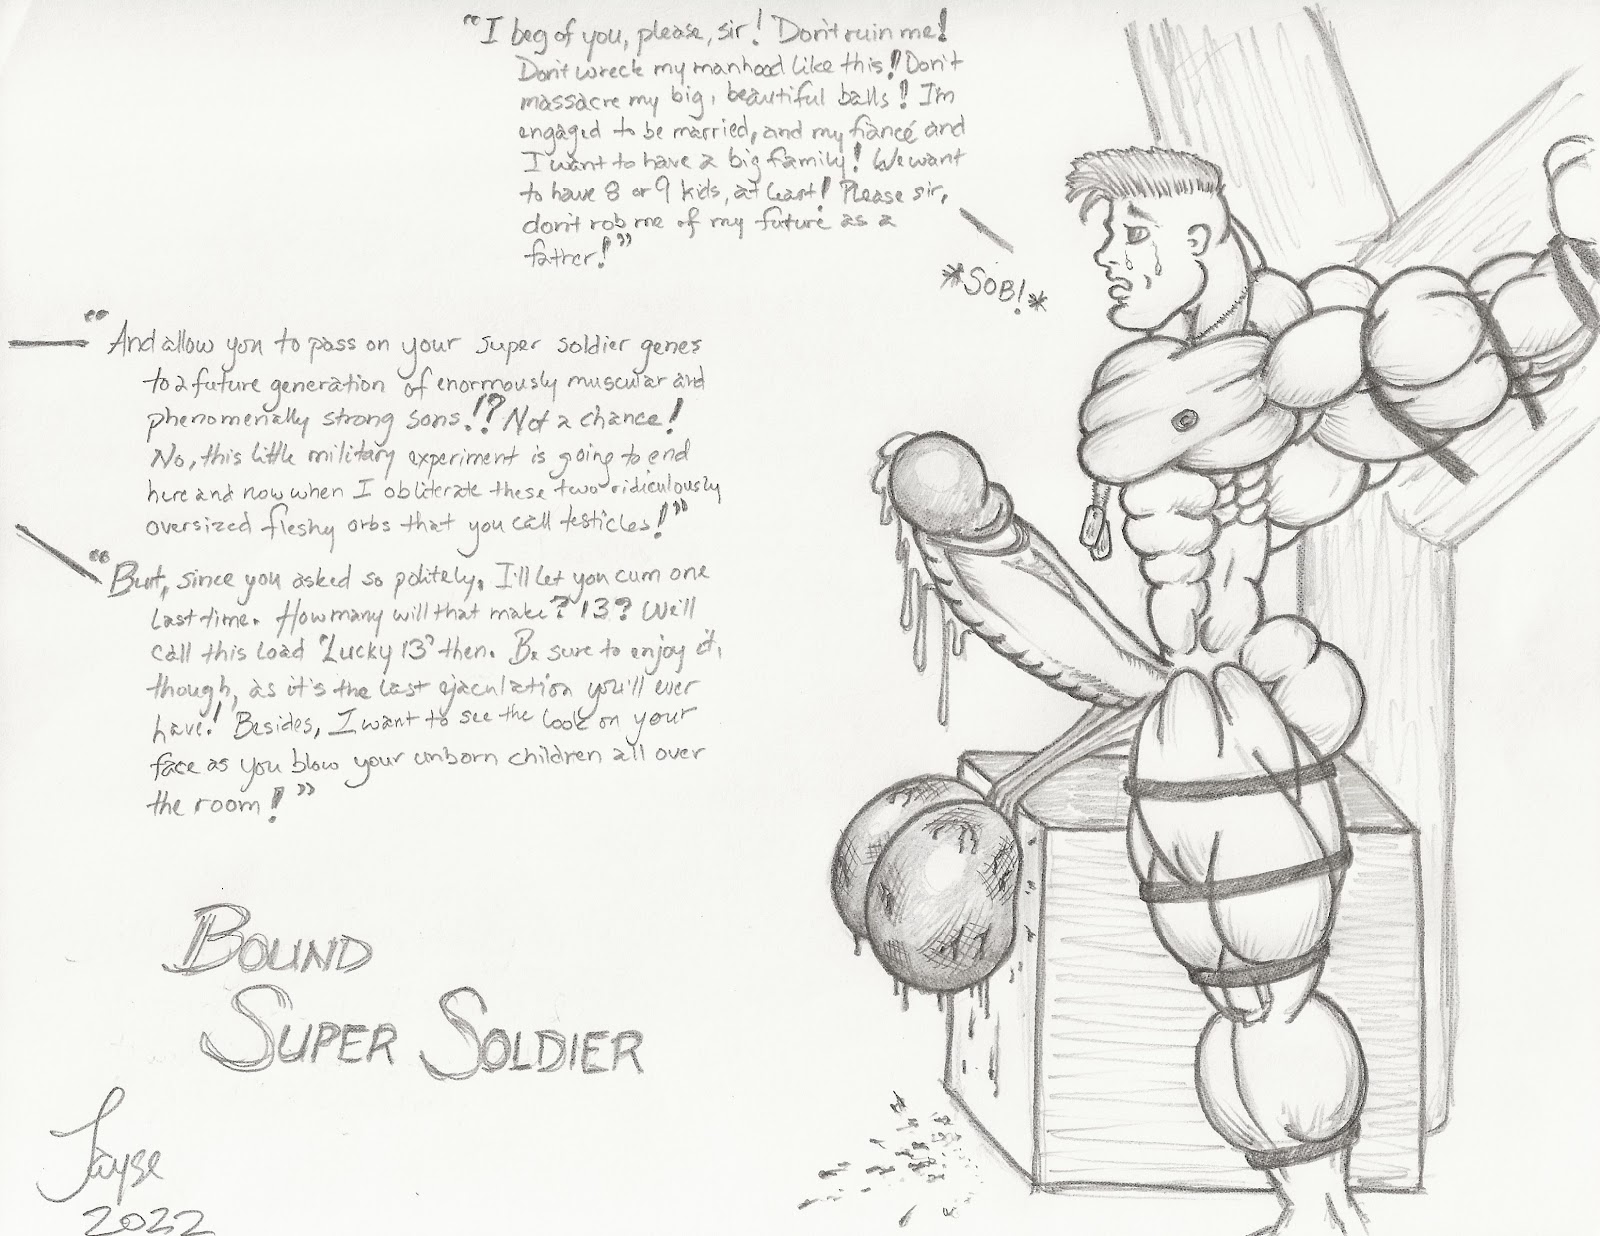 "I beg of you, please, sir! Don't ruin me!
Don't wreck my manhood like this! Don't
massacre my big, beautiful balls! I'm
engaged to be married, and my fiancé and
I want to have a big family! We want
to have 8 or 9 kids, at least! Please sir,
don't rob me of my future as a
father!"
*SOB!*
"And allow you to pass on your super soldier genes
to a future generation of enormously muscular and
phenomenally strong sons!? Not a chance!
No, this little military experiment is going to end
here and now when I obliterate these two ridiculously
oversized fleshy orbs that you call testicles!"
"But, since you asked so politely, I'll let you cum one
last time. How many will that make? 13? We'll
call this load 'Lucky 13' then. Be sure to enjoy it,
though, as it's the last ejaculation you'll ever
have! Besides, I want to see the look on your
face as you blow your unborn children all over
the room!"
BOUND
SUPER SOLDIER
Jayse
2022